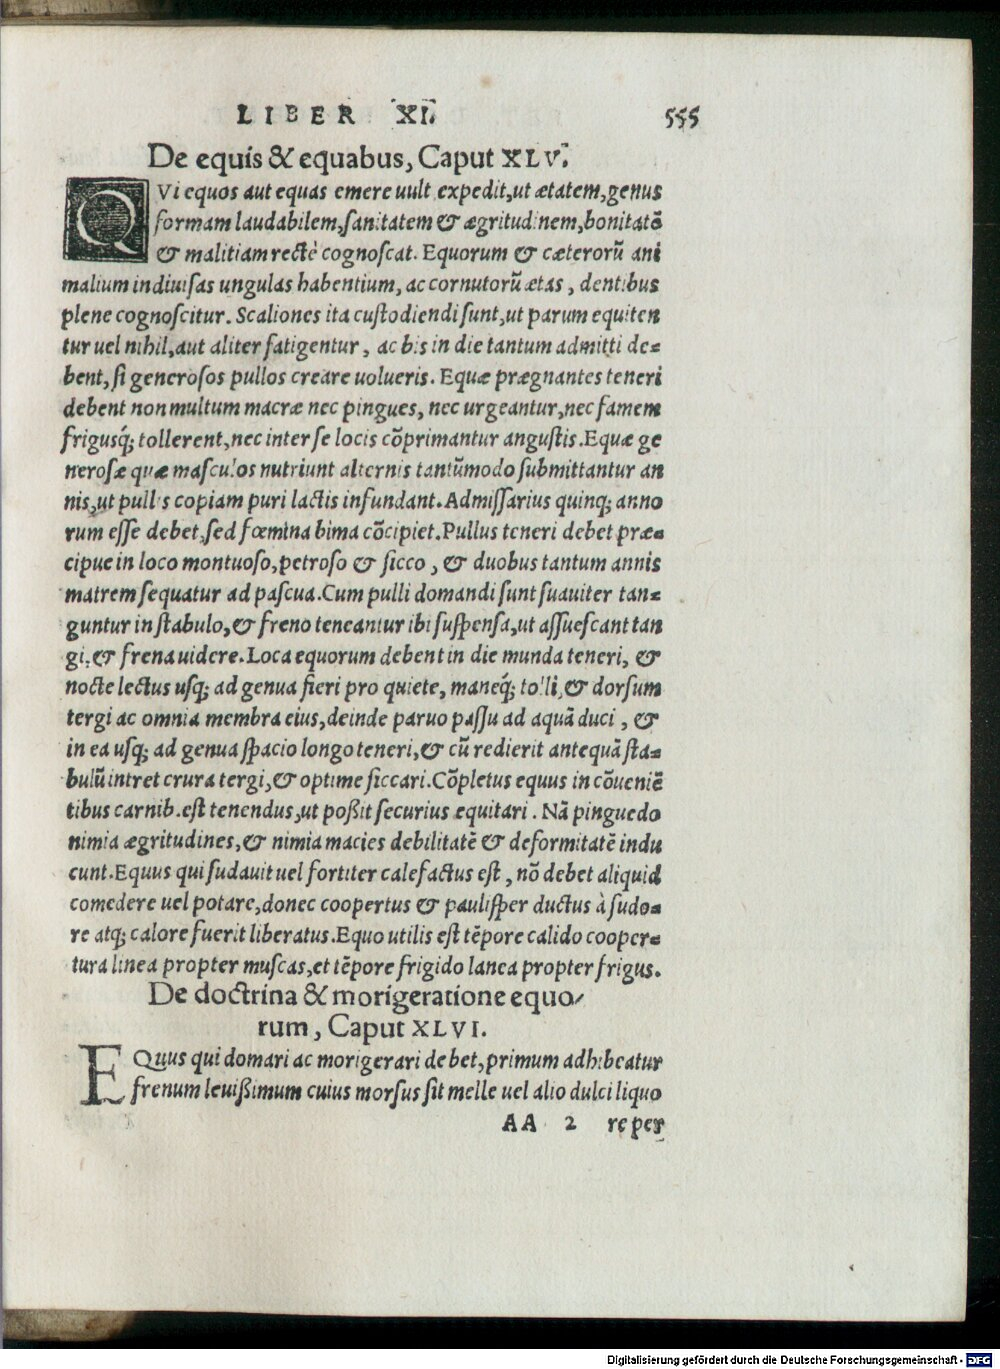 LIBER XI. 555
De equis & equabus, Caput XLV.
QVi equos aut equas emere uult expedit, ut ætatem, genus
formam laudabilem, sanitatem & ægritudinem, bonitatẽ
& malitiam rectè cognoscat. Equorum & cæterorũ ani
malium indiuisas ungulas habentium, ac cornutorũ ætas, dentibus
plene cognoscitur. Scaliones ita custodiendi sunt, ut parum equiten
tur uel nihil, aut aliter fatigentur, ac bis in die tantum admitti de-
bent, si generosos pullos creare uolueris. Equæ prægnantes teneri
debent non multum macræ nec pingues, nec urgeantur, nec famem
frigusq́; tollerent, nec inter se locis cõprimantur angustis. Equæ ge
nerosæ quæ masculos nutriunt alternis tantũmodo submittantur an
nis, ut pullis copiam puri lactis infundant. Admissarius quinq; anno
rum esse debet, sed fœmina bima cõcipiet. Pullus teneri debet præ-
cipue in loco montuoso, petroso & sicco, & duobus tantum annis
matrem sequatur ad pascua. Cum pulli domandi sunt suauiter tan-
guntur in stabulo, & freno teneantur ibi suspensa, ut assuescant tan
gi, & frena uidere. Loca equorum debent in die munda teneri, &
nocte lectus usq; ad genua fieri pro quiete, maneq́; tolli, & dorsum
tergi ac omnia membra eius, deinde paruo passu ad aquã duci, &
in ea usq; ad genua spacio longo teneri, & cũ redierit antequã sta-
bulũ intret crura tergi, & optime siccari. Cõpletus equus in cõueniẽ
tibus carnib. est tenendus, ut poßit securius equitari. Nã pinguedo
nimia ægritudines, & nimia macies debilitatẽ & deformitatẽ indu
cunt. Equus qui sudauit uel fortiter calefactus est, nõ debet aliquid
comedere uel potare, donec coopertus & paulisper ductus à sudo-
re atq; calore fuerit liberatus. Equo utilis est tẽpore calido cooper-
tura linea propter muscas, et tẽpore frigido lanea propter frigus.
De doctrina & morigeratione equo/
rum, Caput XLVI.
EQuus qui domari ac morigerari debet, primum adhibeatur
frenum leuißimum cuius morsus sit melle uel alio dulci liquo
AA 2 re per
Digitalisierung gefördert durch die Deutsche Forschungsgemeinschaft - DFG